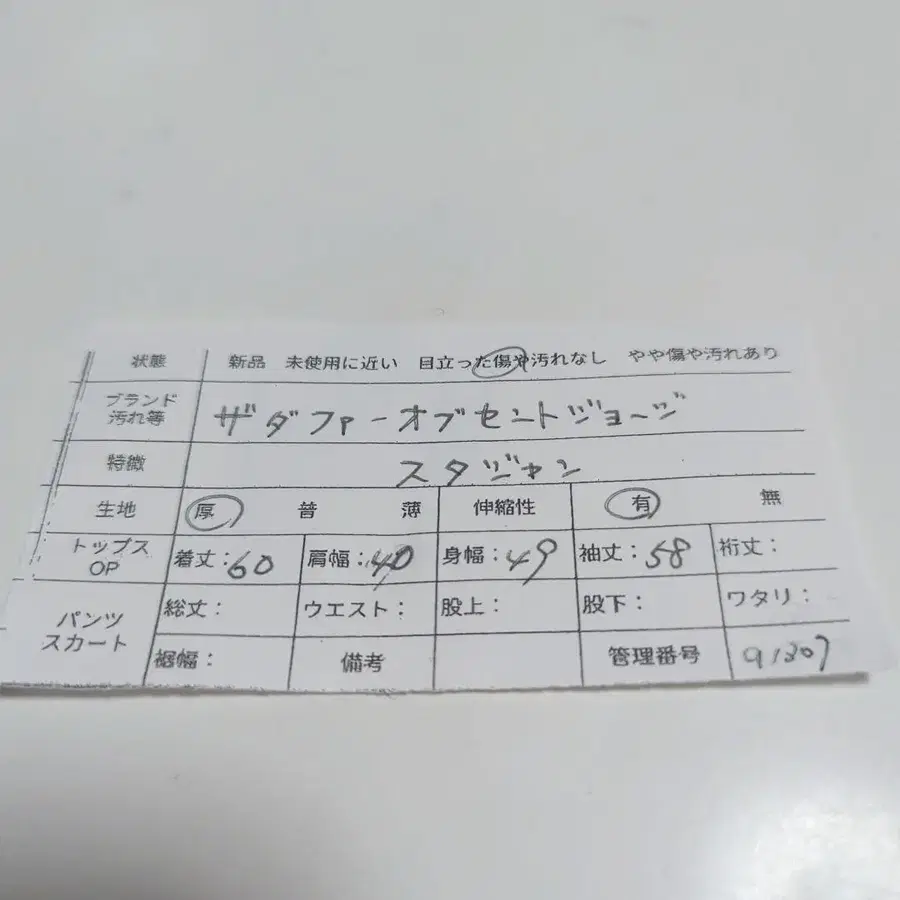 状態 新品 未使用に近い 目立った傷や汚れなし やや傷や汚れあり
ブランド
汚れ等 ザダファーオブセントジョージ
特徴 スタジャン
生地 厚 普 薄 伸縮性 有 無
トップス
OP 着丈:60 肩幅:40 身幅:49 袖丈:58 裄丈:
パンツ
スカート 総丈: ウエスト: 股上: 股下: ワタリ:
裾幅: 備考 管理番号 91307